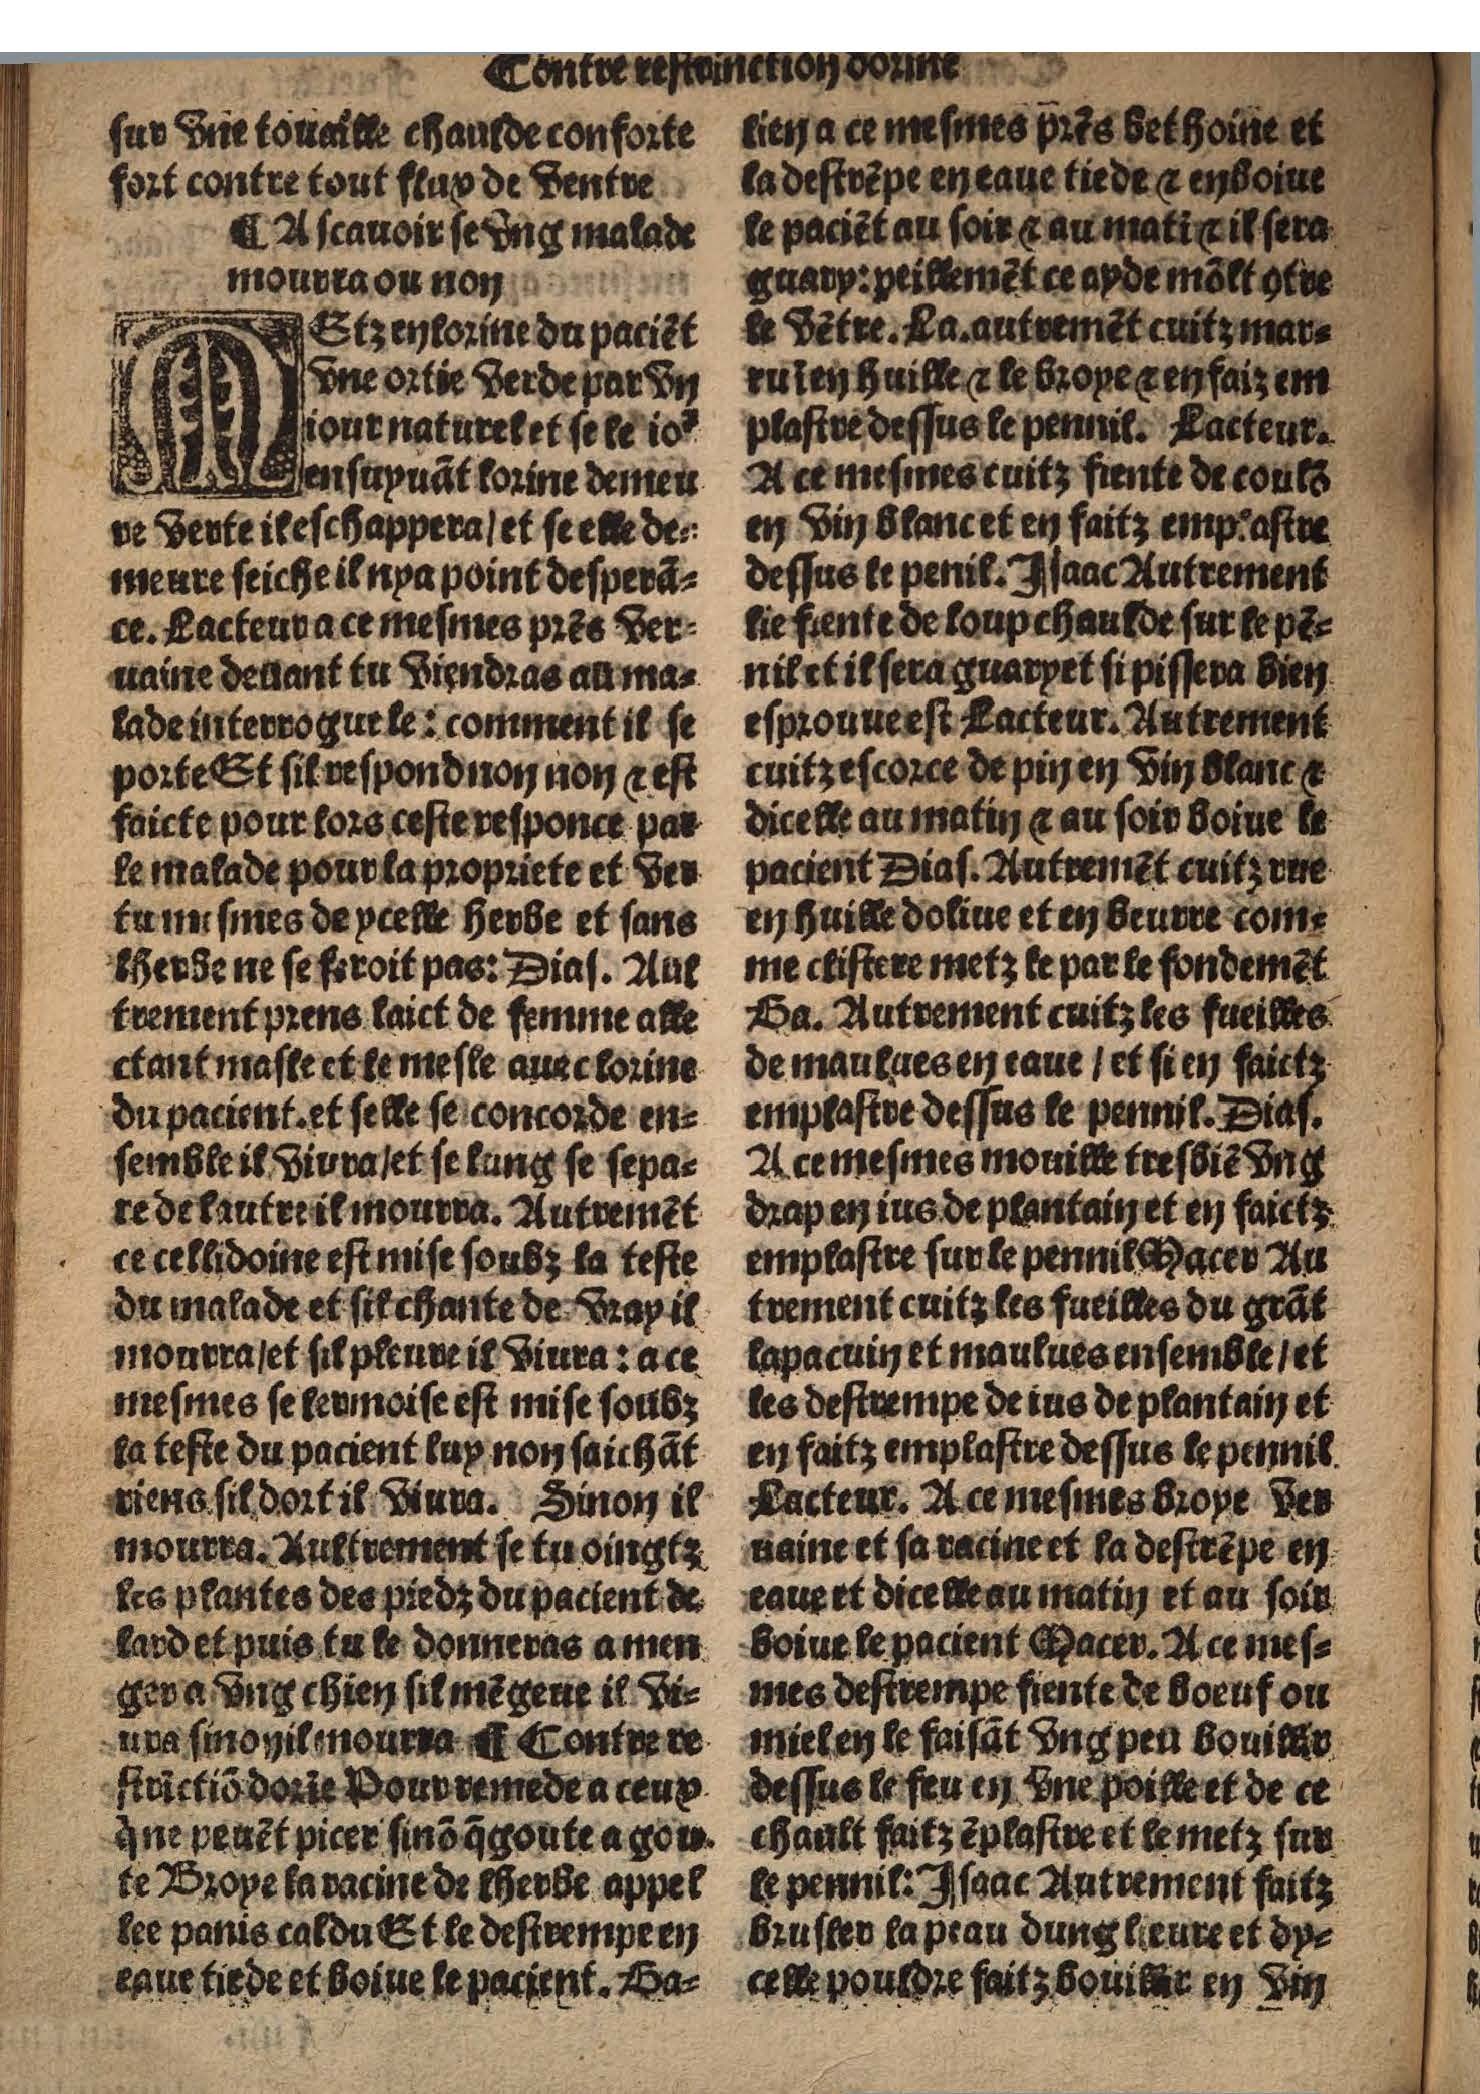 Contre restrinction dorine
sur vne touaille chaulde conforte
fort contre tout flux de ventre
¶ A scauoir se vng malade
mourra ou non
MEtz en lorine du paciēt
vne ortie verde par vn
iour naturel et se le ioꝰ
ensuyuāt lorine demeu
re verte il eschappera / et se elle de-
meure seiche il nya point desperā-
ce. Lacteur a ce mesmes prēs ver-
uaine deuant tu viendras au ma-
lade interrogue le: comment il se
porte Et sil respond non non ⁊ est
faicte pour lors ceste responce par
le malade pour la propriete et ver
tu mesmes de ycelle herbe et sans
lherbe ne se feroit pas: Dias. Aul
trement prens laict de femme alle
ctant masle et le mesle auec lorine
du pacient. et selle se concorde en-
semble il viura / et se lung se sepa-
re de lautre il mourra. Autremēt
ce cellidoine est mise soubz la teste
du malade et sil chante de vray il
mourra / et sil pleure il viura: a ce
mesmes se lermoise est mise soubz
la teste du pacient luy non saichāt
riens sil dort il viura. Sinon il
mourra. Aultrement se tu oingtz
les plantes des piedz du pacient de
lard et puis tu le donneras a men
ger a vng chien sil mēgeue il vi-
ura sinon il mourra ¶ Contre re
strīctiō dorīe Pour remede a ceux
q̄ ne peuēt picer sinō q̄ goute a gou-
te Broye la racine de lherbe appel
lee panis caldu Et le destrempe en
eaue tiede et boiue le pacient. Ga-
lien a ce mesmes prēs bethoine et
la destrēpe en eaue tiede ⁊ en boiue
le paciēt au soir ⁊ au matī ⁊ il sera
guary: peillemēt ce ayde mōlt ꝯtre
le vētre. La. autremēt cuitz mar-
ruī en huille ⁊ le broye ⁊ en faiz em
plastre dessus le pennil. Lacteur.
A ce mesmes cuitz fiente de coulō
en vin blanc et en faitz emplastre
dessus le penil. Isaac Autrement
lie fiente de loup chaulde sur le pē-
nil et il sera guary et si pissera bien
esprouue est Lacteur. Autrement
cuitz escorce de pin en vin blanc ⁊
dicelle au matin ⁊ au soir boiue le
pacient Dias. Autremēt cuitz rue
en huille doliue et en beurre com-
me clistere metz le par le fondemēt
Ga. Autrement cuitz les fueilles
de maulues en eaue / et si en faictz
emplastre dessus le pennil. Dias.
A ce mesmes mouille tresbiē vng
drap en ius de plantain et en faictz
emplastre sur le pennil Macer Au
trement cuitz les fueilles du grāt
lapacuin et maulues ensemble / et
les destrempe de ius de plantain et
en faitz emplastre dessus le pennil
Lacteur. A ce mesmes broye ver
uaine et sa racine et la destrēpe en
eaue et dicelle au matin et au soir
boiue le pacient Macer. A ce mes-
mes destrempe fiente de boeuf ou
miel en le faisāt vng peu bouillir
dessus le feu en vne poille et de ce
chault faitz ēplastre et le metz sur
le pennil: Isaac Autrement faitz
brusler la peau dung lieure et dy-
celle pouldre faitz bouillir en vin